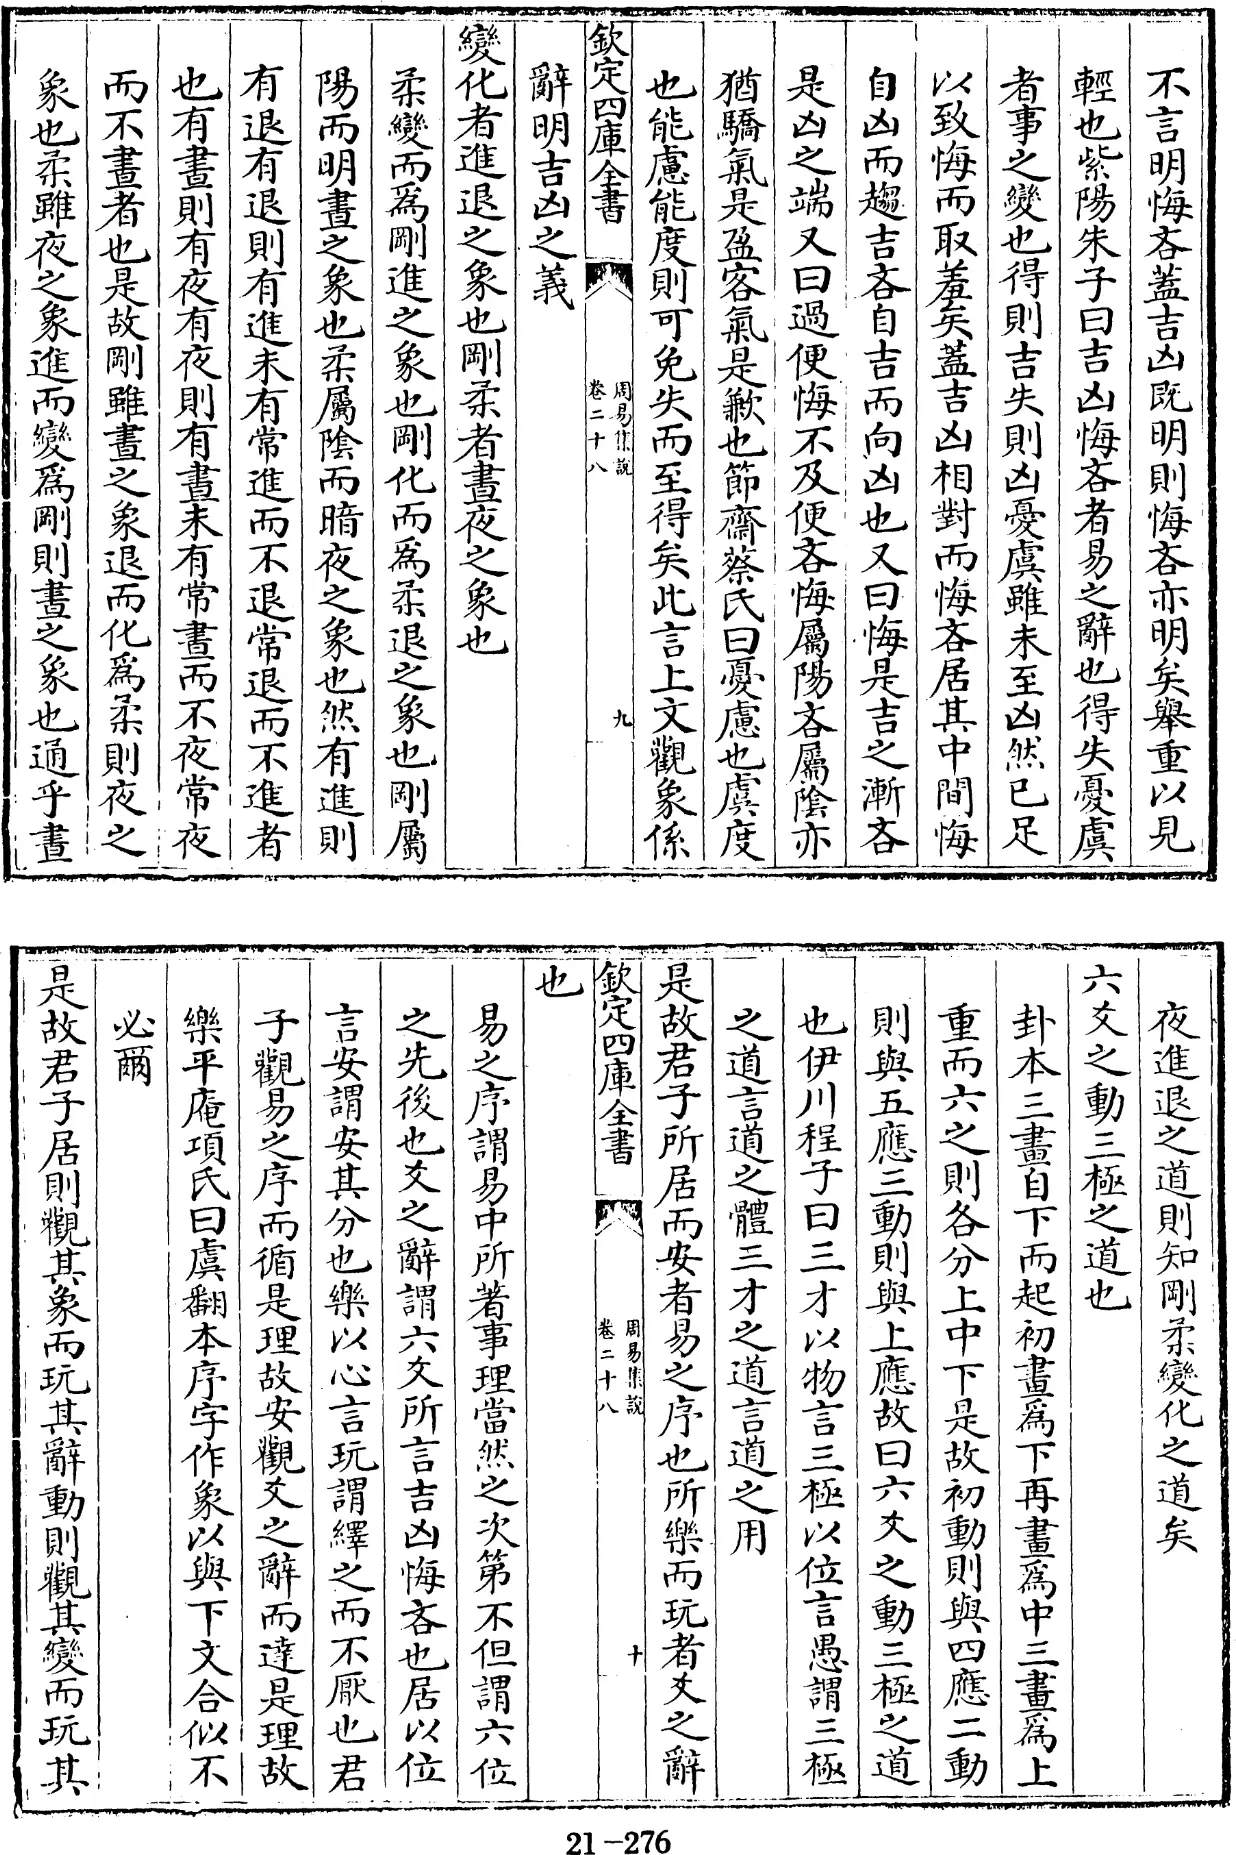 不言明悔吝蓋吉凶既明則悔吝亦明矣舉重以見
輕也紫陽朱子曰吉凶悔吝者易之辭也得失憂虞
者事之變也得則吉失則凶憂虞雖未至凶然已足
以致悔而取羞矣蓋吉凶相對而悔吝居其中間悔
自凶而趨吉吝自吉而向凶也又曰悔是吉之漸吝
是凶之端又曰過便悔不及便吝悔屬陽吝屬陰亦
猶驕氣是盈吝氣是歉也節齋蔡氏曰憂慮也虞度
也能慮能度則可免失而至得矣此言上文觀象係
欽定四庫全書
周易集說
卷二十八
九
辭明吉凶之義
變化者進退之象也剛柔者晝夜之象也
柔變而為剛進之象也剛化而為柔退之象也剛屬
陽而明晝之象也柔屬陰而暗夜之象也然有進則
有退有退則有進未有常進而不退常退而不進者
也有晝則有夜有夜則有晝未有常晝而不夜常夜
而不晝者也是故剛雖晝之象退而化為柔則夜之
象也柔雖夜之象進而變為剛則晝之象也通乎晝
夜進退之道則知剛柔變化之道矣
六爻之動三極之道也
卦本三畫自下而起初畫為下再畫為中三畫為上
重而六之則各分上中下是故初動則與四應二動
則與五應三動則與上應故曰六爻之動三極之道
也伊川程子曰三才以物言三極以位言愚謂三極
之道言道之體三才之道言道之用
是故君子所居而安者易之序也所樂而玩者爻之辭
欽定四庫全書
周易集說
卷二十八
十
也
易之序謂易中所著事理當然之次第不但謂六位
之先後也爻之辭謂六爻所言吉凶悔吝也居以位
言安謂安其分也樂以心言玩謂繹之而不厭也君
子觀易之序而循是理故安觀爻之辭而達是理故
樂平庵項氏曰虞翻本序字作象以與下文合似不
必爾
是故君子居則觀其象而玩其辭動則觀其變而玩其
21-276